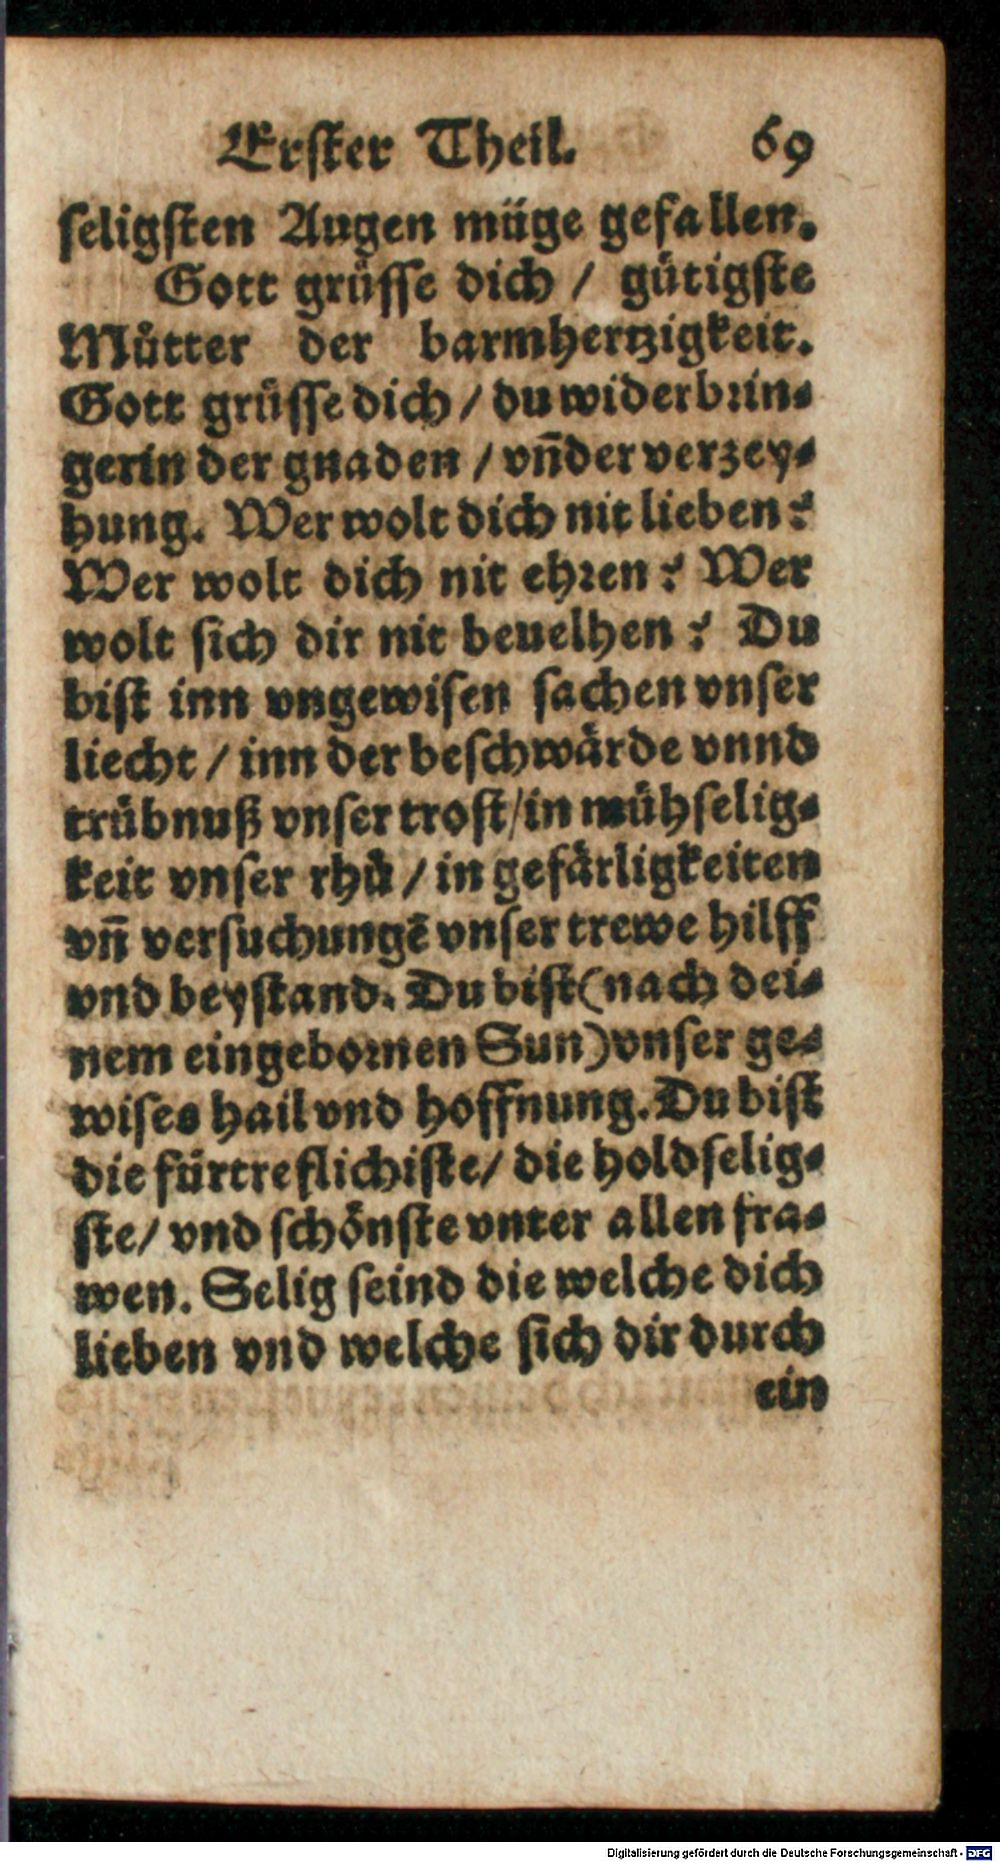 Erster Theil. 69
seligsten Augen müge gefallen.
Gott grüsse dich / gütigste
Můtter der barmhertzigkeit.
Gott grüsse dich / du widerbrin⸗
gerin der gnaden / vn̄ der verzey⸗
hung. Wer wolt dich nit lieben?
Wer wolt dich nit ehren? Wer
wolt sich dir nit beuelhen? Du
bist inn vngewisen sachen vnser
liecht / inn der beschwärde vnnd
trübnuß vnser trost / in mühselig⸗
keit vnser rhů / in gefärligkeiten
vn̄ versuchungē vnser trewe hilff
vnd beystand. Du bist (nach dei⸗
nem eingebornen Sun) vnser ge⸗
wises hail vnd hoffnung. Du bist
die fürtreflichiste / die holdselig⸗
ste / vnd schönste vnter allen fra⸗
wen. Selig seind die welche dich
lieben vnd welche sich dir durch
ein
Digitalisierung gefördert durch die Deutsche Forschungsgemeinschaft - DFG